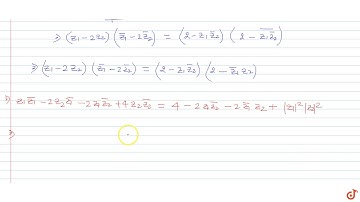 ⇒ (z1 - 2z2) (z̄1 - 2z̄2) = (2 - z1z̄2) (2 - \overline{z1z̄2})
⇒ (z1 - 2z2) (z̄1 - 2z̄2) = (2 - z1z̄2) (2 - z̄1z2)
⇒ z1z̄1 - 2z2z̄1 - 2z1z̄2 + 4z2z̄2 = 4 - 2z1z̄2 - 2z̄1z2 + |z1|²|z2|²
⇒